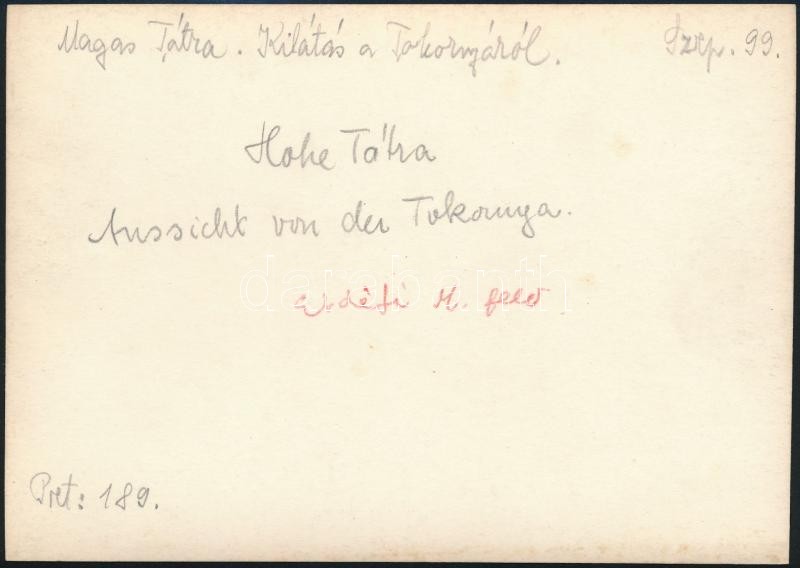 Magas Tátra. Kilátás a Tokornyáról. Szep. 99.
Hohe Tátra
Aussicht von der Tokornya.
darabanth
Erdéfi M. felv
Pret: 189.